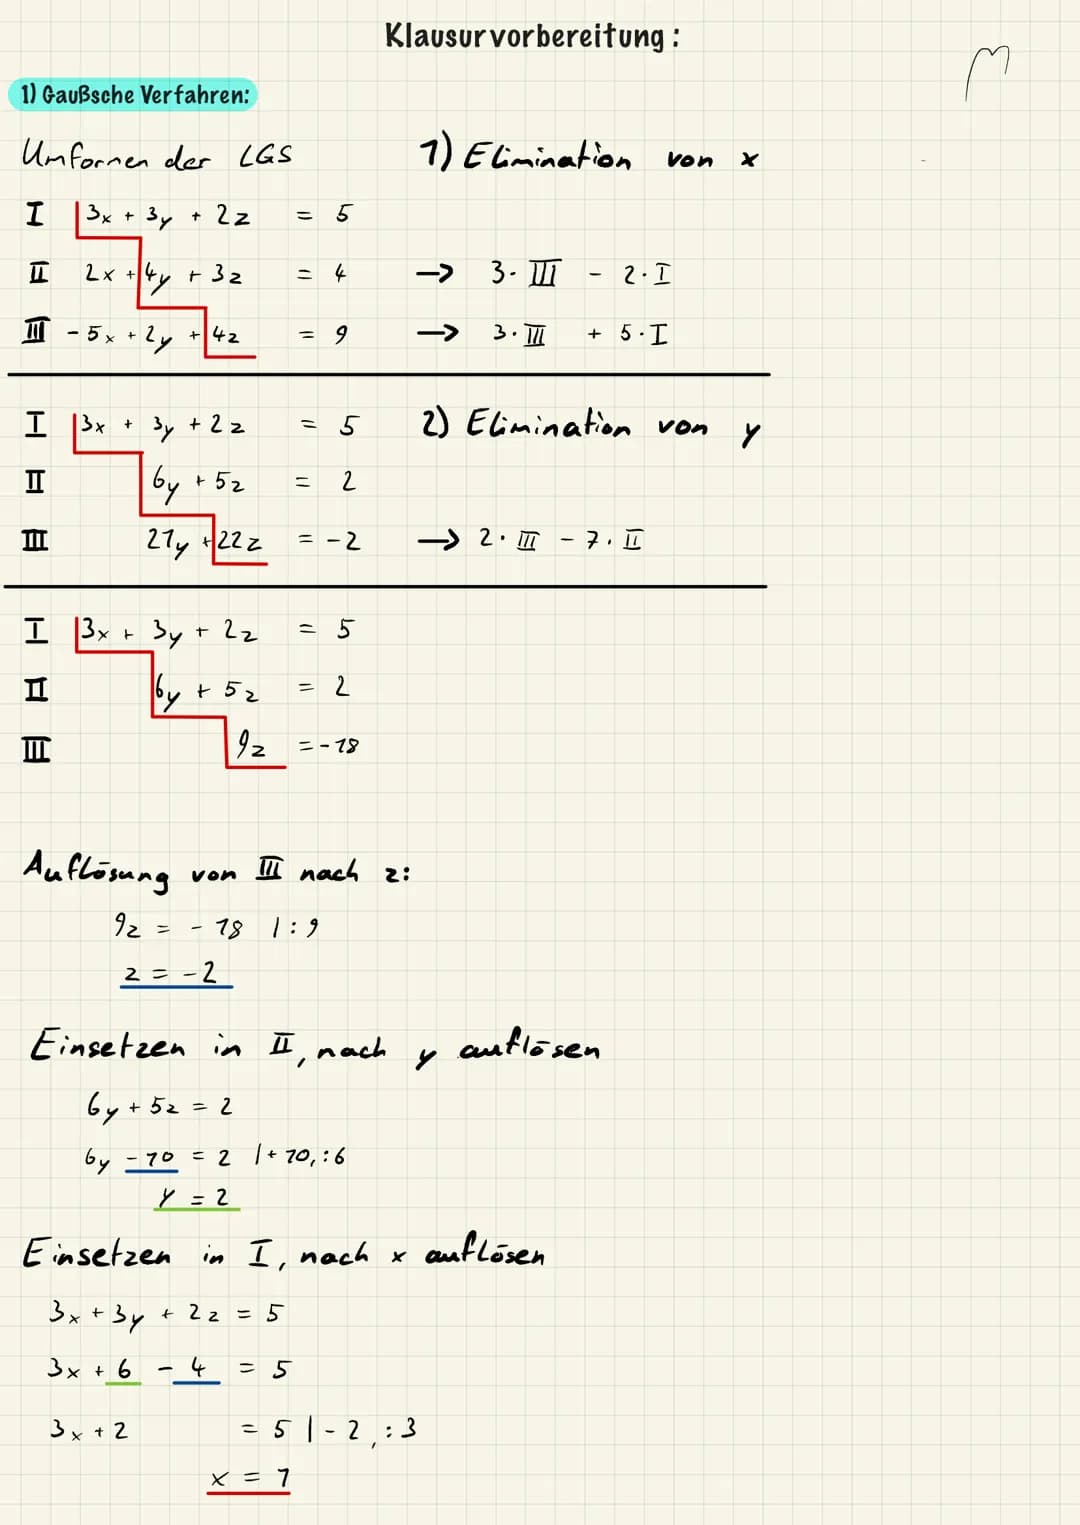 Klausurvorbereitung:
1) Gaußsche Verfahren:
Umformen der LGS 1) Elimination von x
I 3x + 3y + 2z = 5
II 2x + 4y + 3z = 4 → 3·III - 2·I
III -5x + 2y + 4z = 9 → 3·III + 5·I
I 3x + 3y + 2z = 5 2) Elimination von y
II 6y + 5z = 2
III 21y + 22z = -2 → 2·III - 7·II
I 3x + 3y + 2z = 5
II 6y + 5z = 2
III 9z = -18
Auflösung von III nach z:
9z = -18 |:9
z = -2
Einsetzen in II, nach y auflösen
6y + 5z = 2
6y -10 = 2 |+10,:6
y = 2
Einsetzen in I, nach x auflösen
3x + 3y + 2z = 5
3x + 6 - 4 = 5
3x + 2 = 5 |-2,:3
x = 1